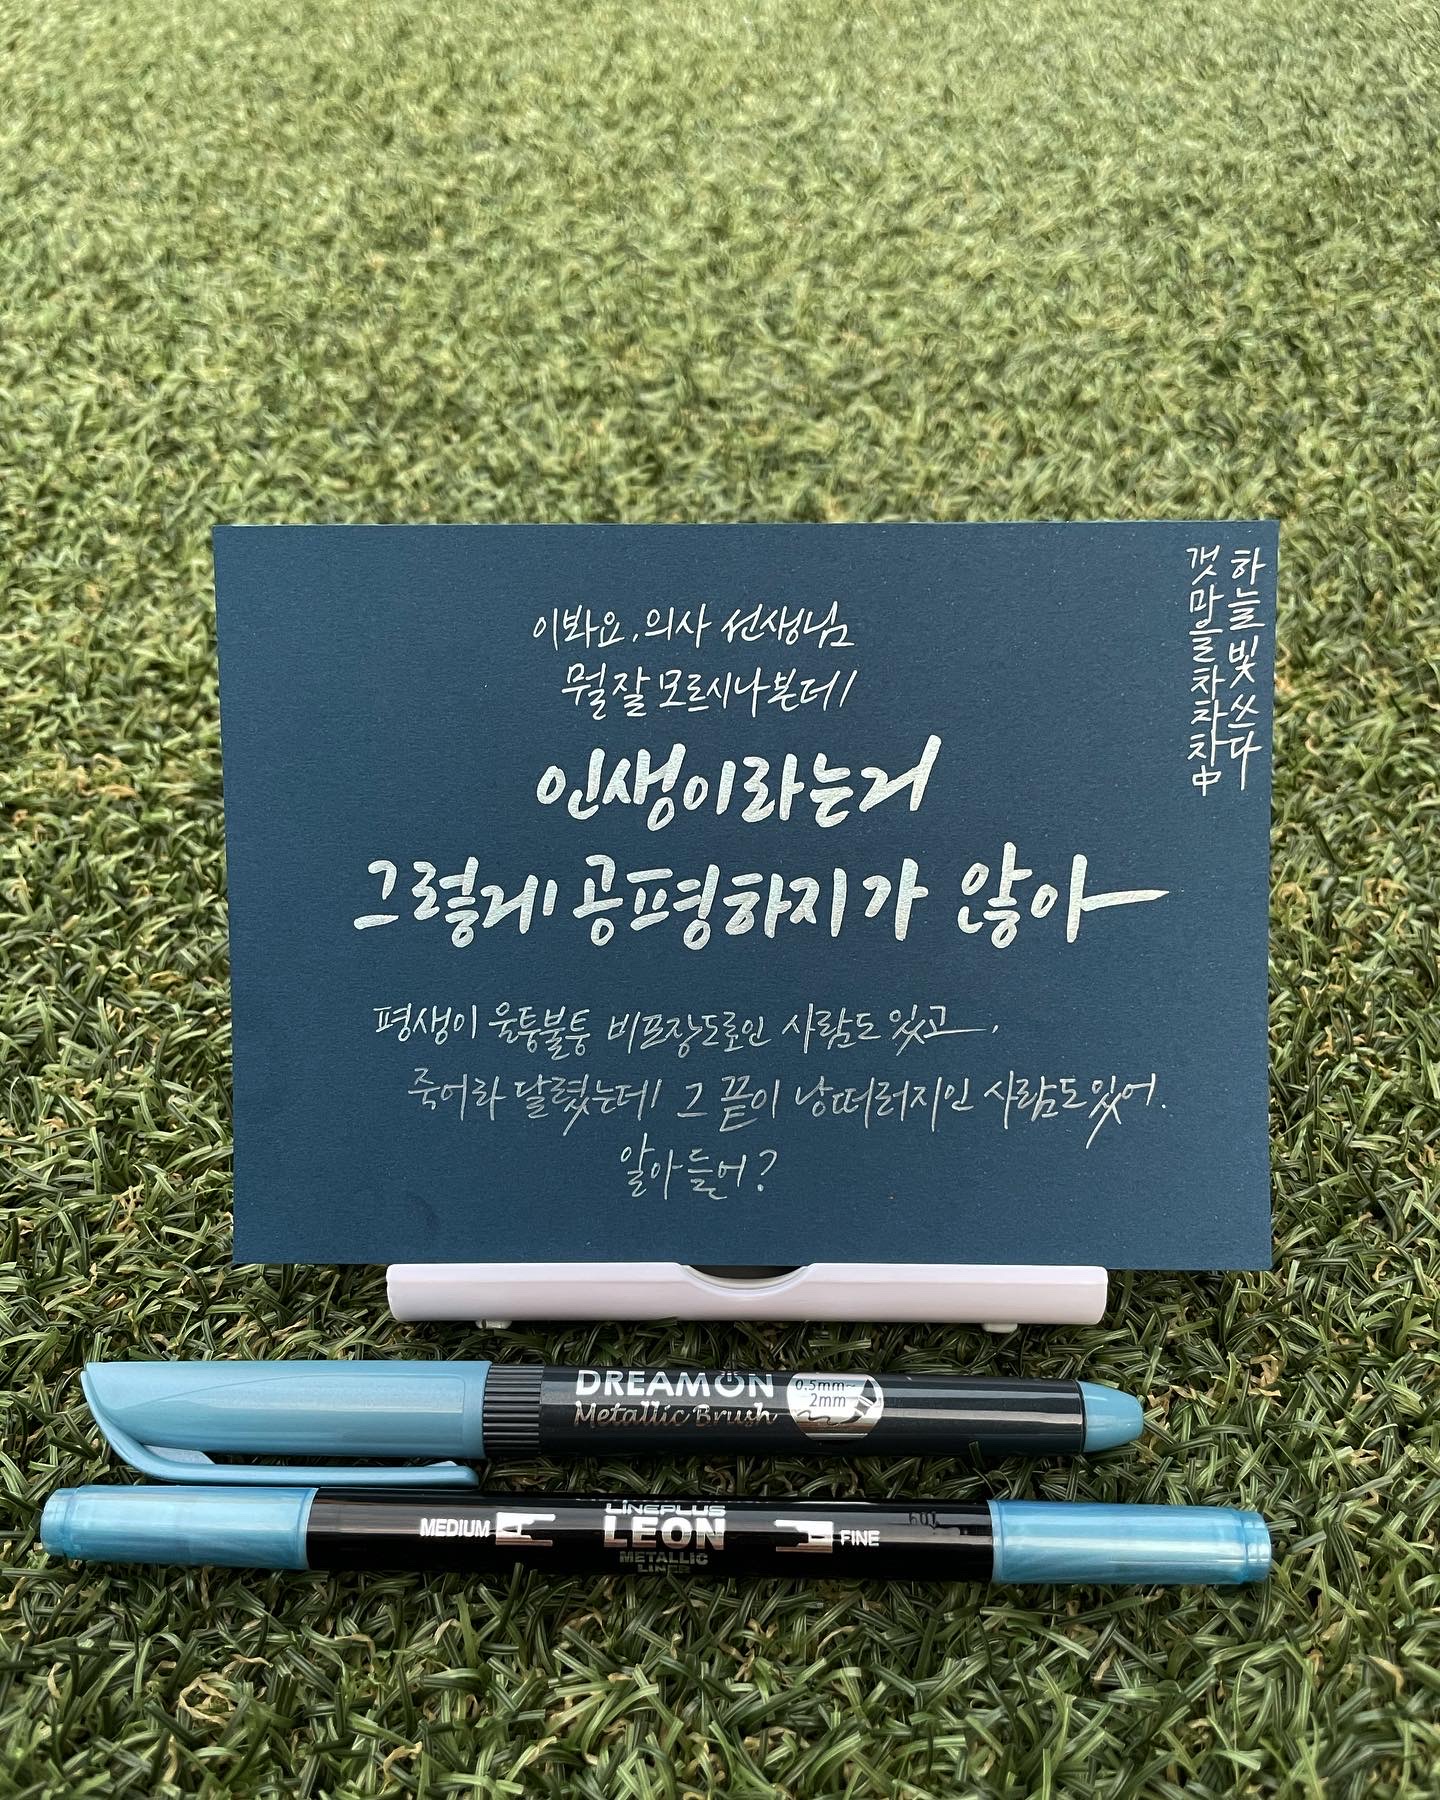 이봐요, 의사 선생님
뭘 잘 모르시나본데
인생이라는거
그렇게 공평하지가 않아
평생이 울퉁불퉁 비포장도로인 사람도 있고,
죽어라 달렸는데 그 끝이 낭떠러지인 사람도 있어.
알아들어?
하늘빛 쓰다
갯마을 차차차 中
DREAMON
Metallic Brush
0.5mm~
2mm
MEDIUM
LINEPLUS
LEON
METALLIC
LINER
FINE